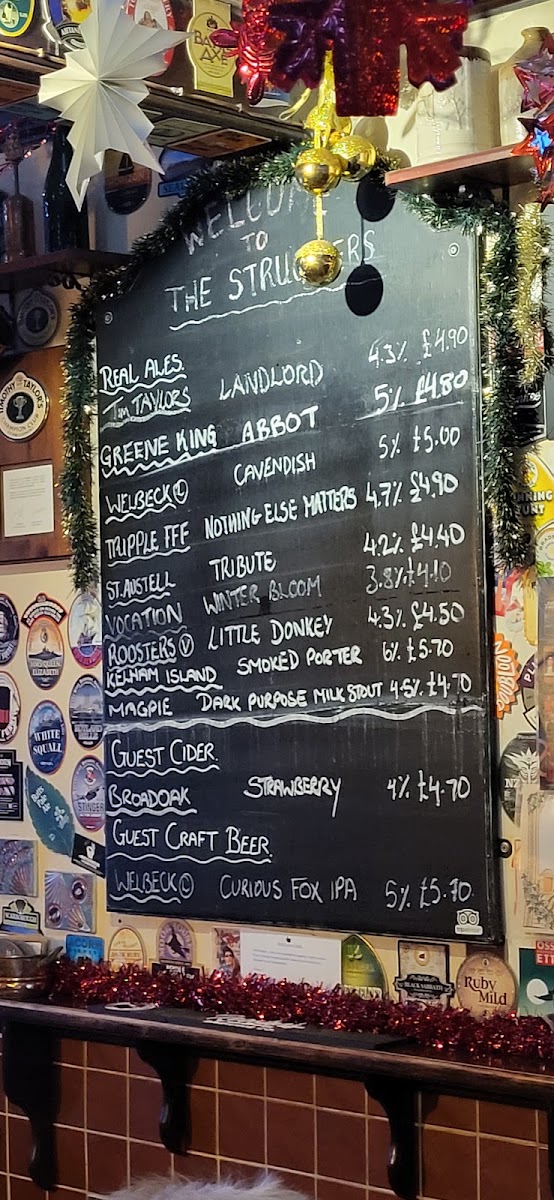 BATTLE AXE
WELCOME
TO
THE STRUGGLERS
REAL ALES
TIM TAYLORS LANDLORD 4.3% £4.90
GREENE KING ABBOT 5% £4.80
WELBECK Ⓛ CAVENDISH 5% £5.00
TRIPPLE FFF NOTHING ELSE MATTERS 4.7% £4.90
ST. AUSTELL TRIBUTE 4.2% £4.40
VOCATION WINTER BLOOM 3.8% £4.10
ROOSTERS Ⓥ LITTLE DONKEY 4.3% £4.50
KELHAM ISLAND SMOKED PORTER 6% £5.70
MAGPIE DARK PURPOSE MILK STOUT 4.5% £4.70
GUEST CIDER
BROADOAK STRAWBERRY 4% £4.70
GUEST CRAFT BEER
WELBECK Ⓛ CURIOUS FOX IPA 5% £5.70
TIMOTHY TAYLOR'S
QUEEN ELIZABETH
WHITE SQUALL
STINGER
SCARBOROUGH
BLACK SABBATH
Ruby Mild